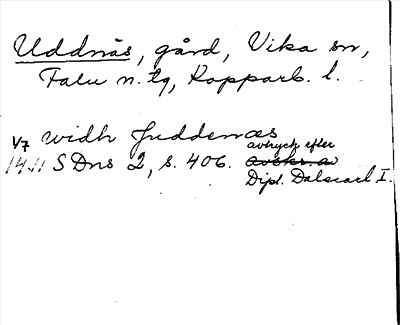 Uddnäs, gård, Vika sn,
Falu n. tg, Kopparb. l.
1/7 widh Juddenæs
avtryck efter
1411 SDns 2, s. 406. avskr. av
Dipl. Dalecarl I.